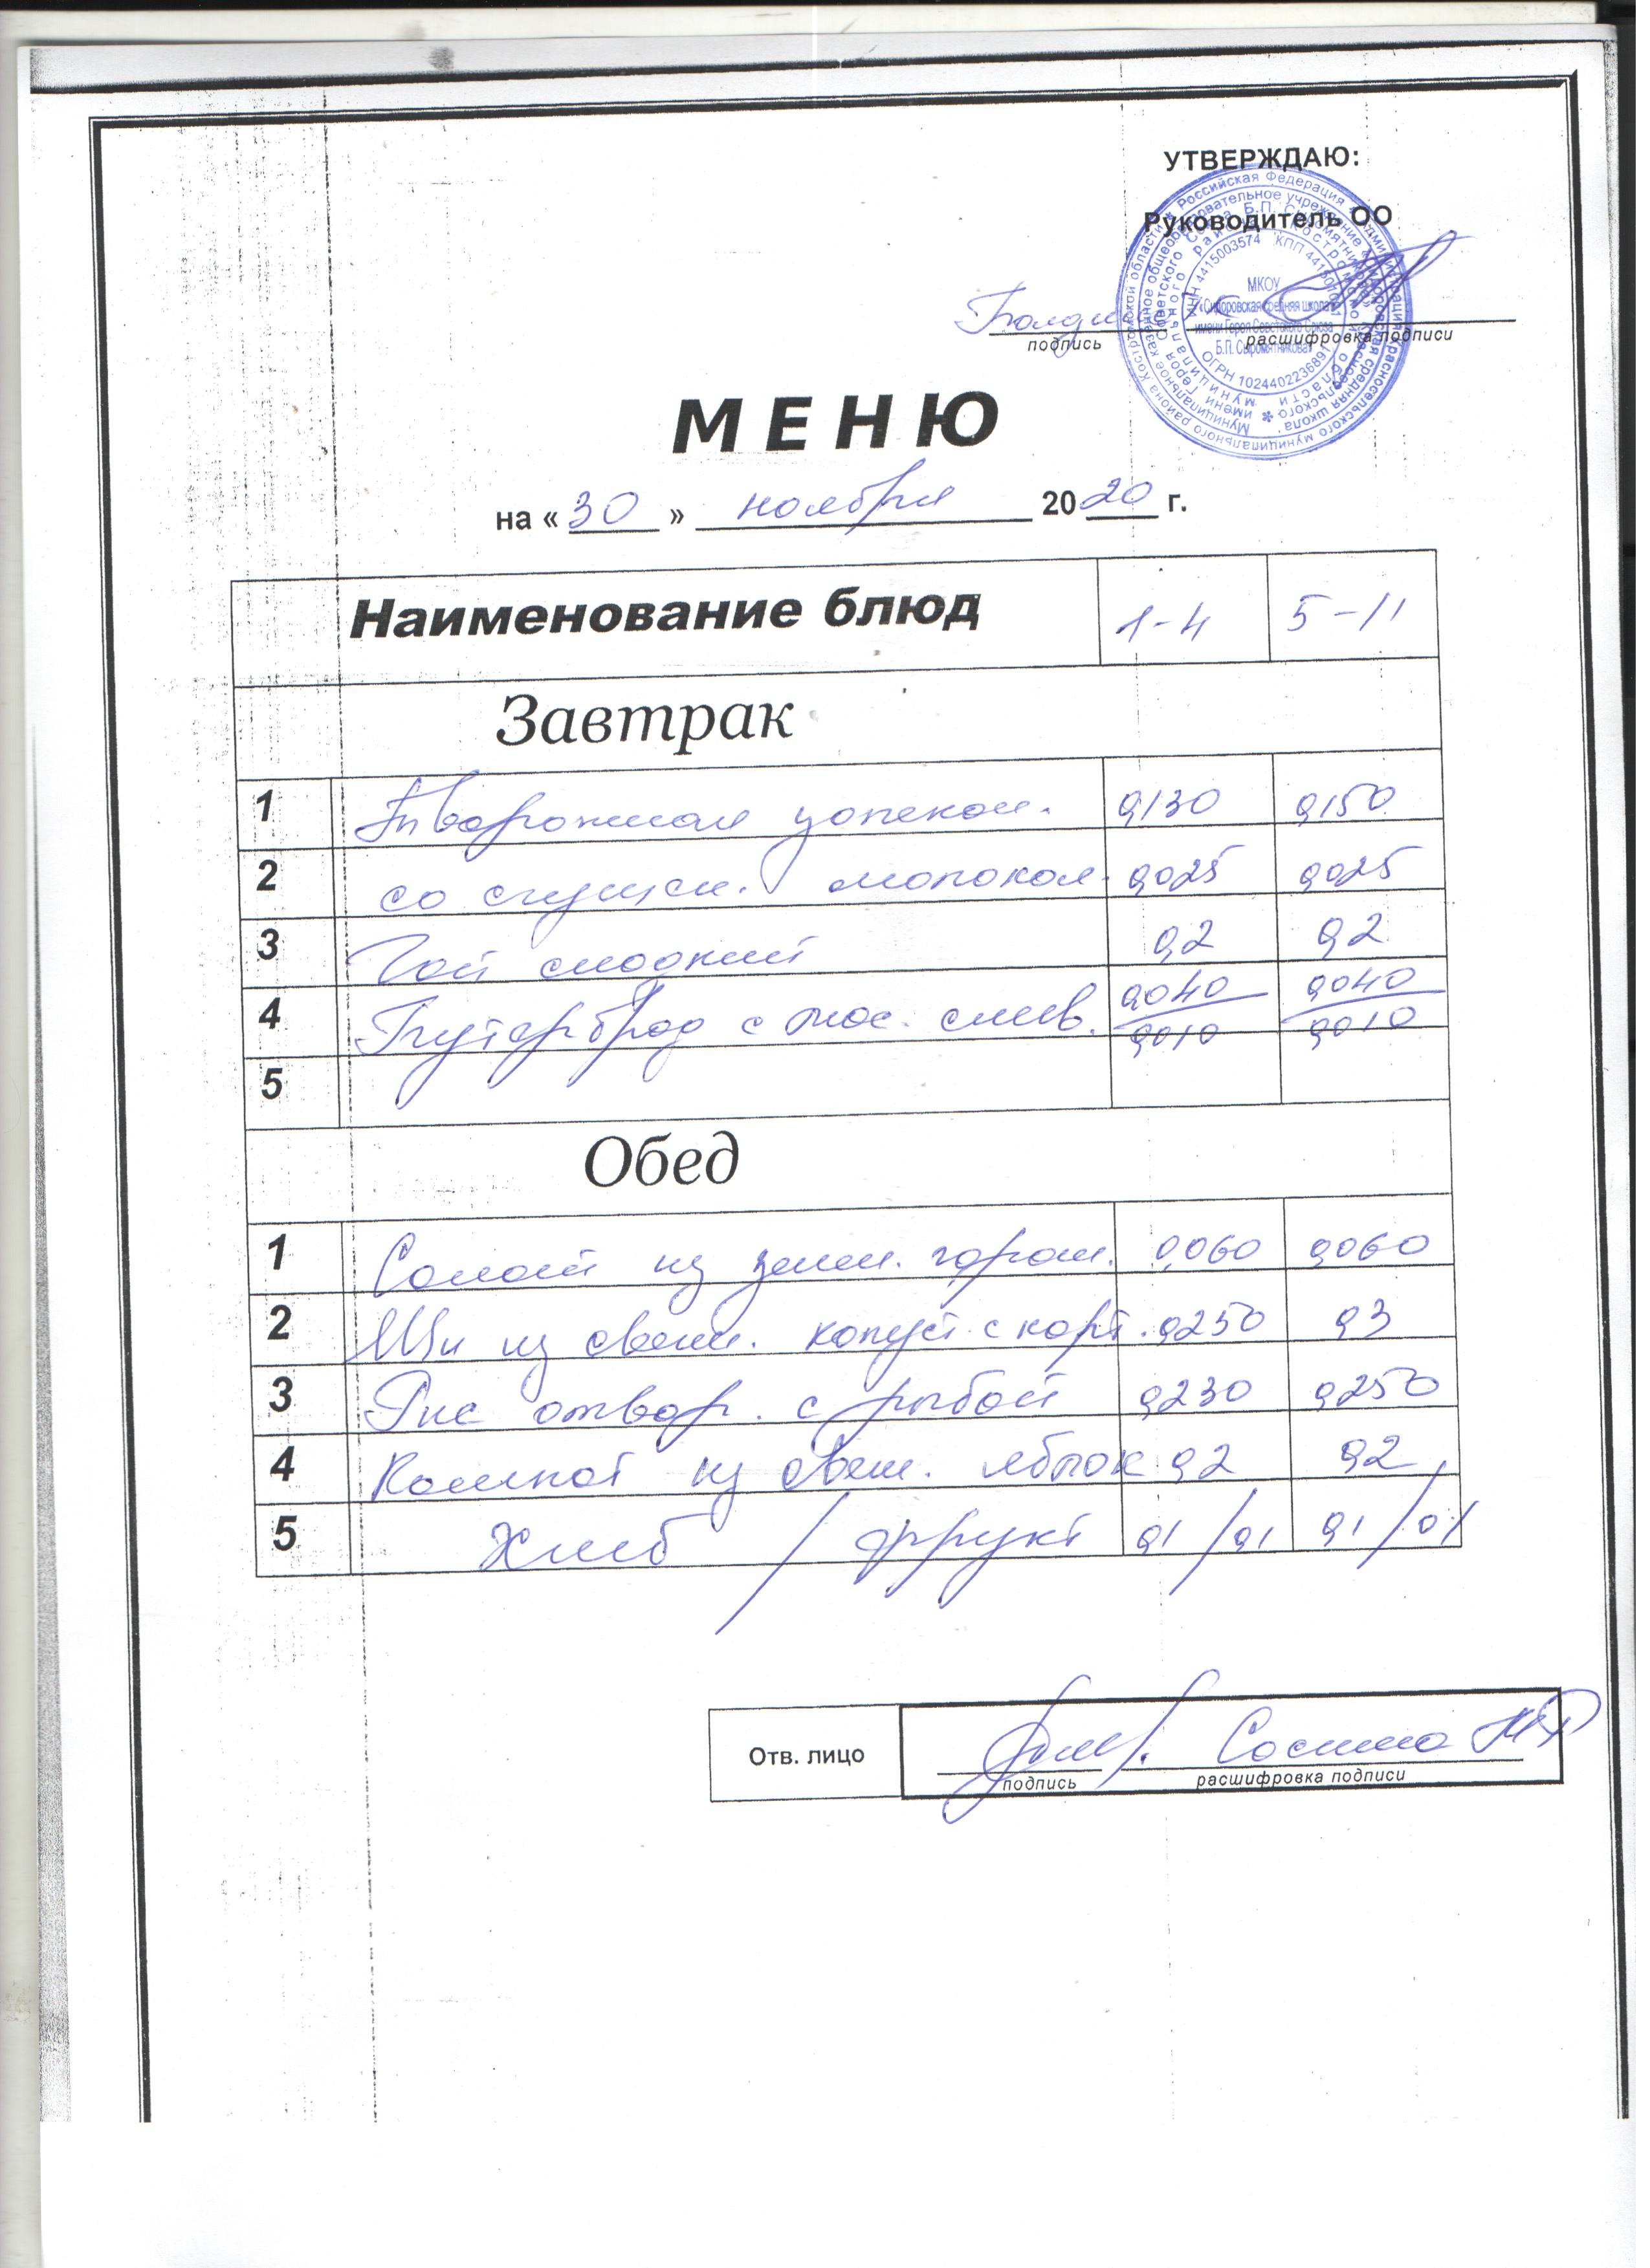 УТВЕРЖДАЮ:
Руководитель ОО
подпись расшифровка подписи
МКОУ
«Сидоровская средняя школа
имени Героя Советского Союза
Б.П. Сыромятникова»
ИНН 4415003574
ОГРН 1024402236891
МЕНЮ
на « 30 » ноября 2020 г.
Наименование блюд 1-4 5-11
Завтрак
1 Творожная запекан. 0,130 0,150
2 со сгущен. молоком. 0,025 0,025
3 Чай сладкий 0,2 0,2
4 Бутерброд с мас. слив. 0,040/0,010 0,040/0,010
5
Обед
1 Салат из зелен. горош. 0,060 0,060
2 Щи из свеж. капуст. с карт. 0,250 0,3
3 Рис отвар. с рыбой 0,230 0,250
4 Компот из свеж. яблок 0,2 0,2
5 Хлеб / фрукт 0,1 / 0,1 0,1 / 0,1
Отв. лицо
подпись расшифровка подписи